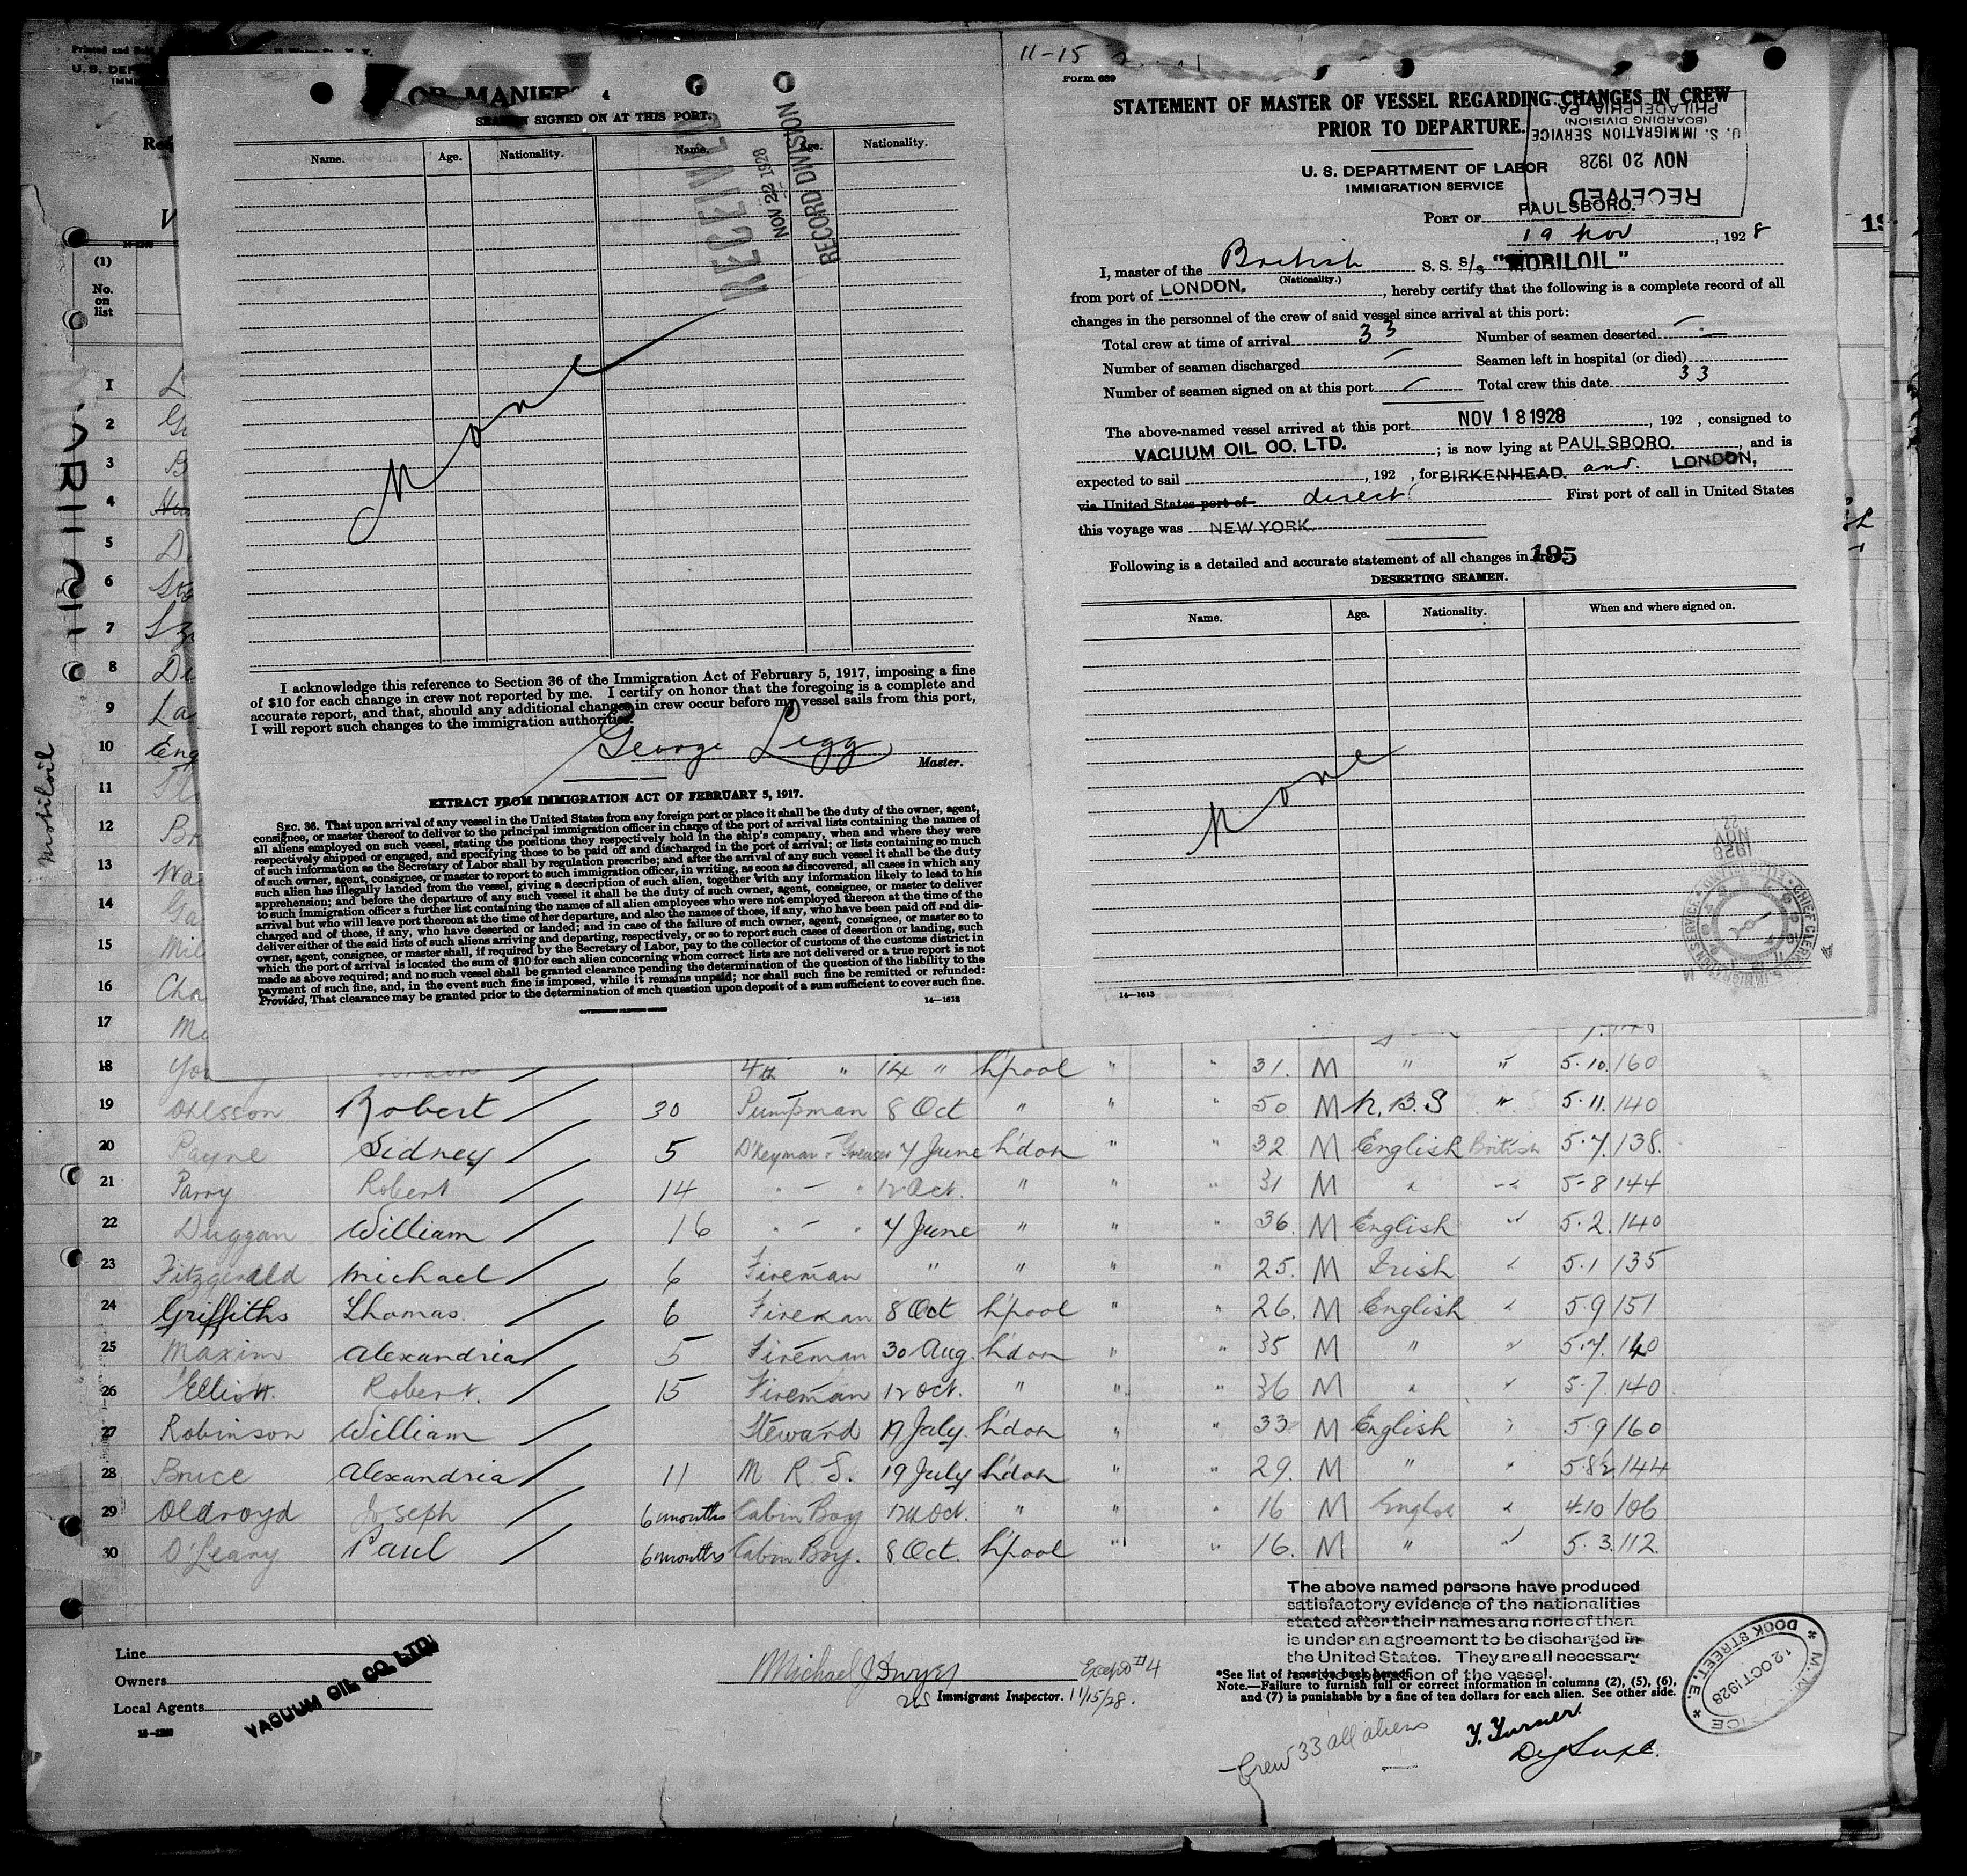 U. S. DEP
IMMI
(1)
No.
on
list
SEAMEN SIGNED ON AT THIS PORT.
Name. Age. Nationality. Name. Age. Nationality.
RECEIVED
NOV 22 1928
RECORD DIVISION
None
I acknowledge this reference to Section 36 of the Immigration Act of February 5, 1917, imposing a fine
of $10 for each change in crew not reported by me. I certify on honor that the foregoing is a complete and
accurate report, and that, should any additional changes in crew occur before my vessel sails from this port,
I will report such changes to the immigration authorities.
George Legg
Master.
EXTRACT FROM IMMIGRATION ACT OF FEBRUARY 5, 1917.
SEC. 36. That upon arrival of any vessel in the United States from any foreign port or place it shall be the duty of the owner, agent,
consignee, or master thereof to deliver to the principal immigration officer in charge of the port of arrival lists containing the names of
all aliens employed on such vessel, stating the positions they respectively hold in the ship's company, when and where they were
respectively shipped or engaged, and specifying those to be paid off and discharged in the port of arrival; or lists containing so much
of such information as the Secretary of Labor shall by regulation prescribe; and after the arrival of any such vessel it shall be the duty
of such owner, agent, consignee, or master to report to such immigration officer, in writing, as soon as discovered, all cases in which any
such alien has illegally landed from the vessel, giving a description of such alien, together with any information likely to lead to his
apprehension; and before the departure of any such vessel it shall be the duty of such owner, agent, consignee, or master to deliver
to such immigration officer a further list containing the names of all alien employees who were not employed thereon at the time of the
arrival but who will leave port thereon at the time of her departure, and also the names of those, if any, who have been paid off and dis-
charged and of those, if any, who have deserted or landed; and in case of the failure of such owner, agent, consignee, or master so to
deliver either of the said lists of such aliens arriving and departing, respectively, or so to report such cases of desertion or landing, such
owner, agent, consignee, or master shall, if required by the Secretary of Labor, pay to the collector of customs of the customs district in
which the port of arrival is located the sum of $10 for each alien concerning whom correct lists are not delivered or a true report is not
made as above required; and no such vessel shall be granted clearance pending the determination of the question of the liability to the
payment of such fine, and, in the event such fine is imposed, while it remains unpaid; nor shall such fine be remitted or refunded:
Provided, That clearance may be granted prior to the determination of such question upon deposit of a sum sufficient to cover such fine.
14—1613
GOVERNMENT PRINTING OFFICE
11-15
Form 689
STATEMENT OF MASTER OF VESSEL REGARDING CHANGES IN CREW
PRIOR TO DEPARTURE.
U. S. DEPARTMENT OF LABOR
IMMIGRATION SERVICE
RECEIVED
NOV 20 1928
U. S. IMMIGRATION SERVICE
(BOARDING DIVISION)
PHILADELPHIA PA
PORT OF PAULSBORO.
19 Nov, 1928
I, master of the British S. S. s/s "MOBILOIL"
(Nationality.)
from port of LONDON, hereby certify that the following is a complete record of all
changes in the personnel of the crew of said vessel since arrival at this port:
Total crew at time of arrival 33 Number of seamen deserted -
Number of seamen discharged - Seamen left in hospital (or died)
Number of seamen signed on at this port - Total crew this date 33
The above-named vessel arrived at this port NOV 18 1928, 192 , consigned to
VACUUM OIL CO. LTD. ; is now lying at PAULSBORO. , and is
expected to sail , 192 , for BIRKENHEAD. and LONDON,
via United States port of direct First port of call in United States
this voyage was NEW YORK.
195
Following is a detailed and accurate statement of all changes in
DESERTING SEAMEN.
Name. Age. Nationality. When and where signed on.
None
1928
NOV
22
CHIEF CLERK
14—1613
Mobiloil
1
2
3
4
5
6
7
8
9
10 Eng
11
12
13 Wa
14
15 Mil
16 Cha
17
18 You 4th " 14 " L'pool " " 31. M " " 5.10. 160
19 Ohlsson Robert 30 Pumpman 8 Oct " " " 50 M N.B.S " 5.11. 140
20 Payne Sidney 5 D'Keyman & Greaser 7 June L'don " " 32 M English British 5.7. 138.
21 Parry Robert 14 " - " 12 Oct. " " " 31 M " " 5-8 144
22 Duggan William 16 " - " 7 June " " " 36. M English " 5.2. 140
23 Fitzgerald Michael 6 Fireman " " " " 25. M Irish " 5.1 135
24 Griffiths Thomas. 6 Fireman 8 Oct L'pool " " 26. M English " 5.9 151
25 Maxim Alexandria 5 Fireman 30 Aug. L'don " " 35 M " " 5.7. 140
26 Elliott. Robert. 15 Fireman 12 Oct. " " " 36 M " " 5.7. 140
27 Robinson William Steward 19 July L'don " " 33 M English " 5.9 160
28 Bruce Alexandria 11 M R S. 19 July L'don " " 29. M " " 5.8½ 144
29 Oldroyd Joseph 6 months Cabin Boy 12th Oct. " " " 16 M English " 4.10 106
30 O'Leary Paul 6 months Cabin Boy. 8 Oct. L'pool " " 16. M " " 5.3. 112.
The above named persons have produced
satisfactory evidence of the nationalities
stated after their names and none of them
is under an agreement to be discharged in
the United States. They are all necessary
tion of the vessel.
Line
Owners
Local Agents
VACUUM OIL CO. LTD.
Michael J Dwyer Except #4
US Immigrant Inspector. 11/15/28.
*See list of races on back hereof.
Note.—Failure to furnish full or correct information in columns (2), (5), (6),
and (7) is punishable by a fine of ten dollars for each alien. See other side.
Crew 33 all aliens
Y. Turner
Dy Supt.
DOCK STREET. E.
12 OCT 1928